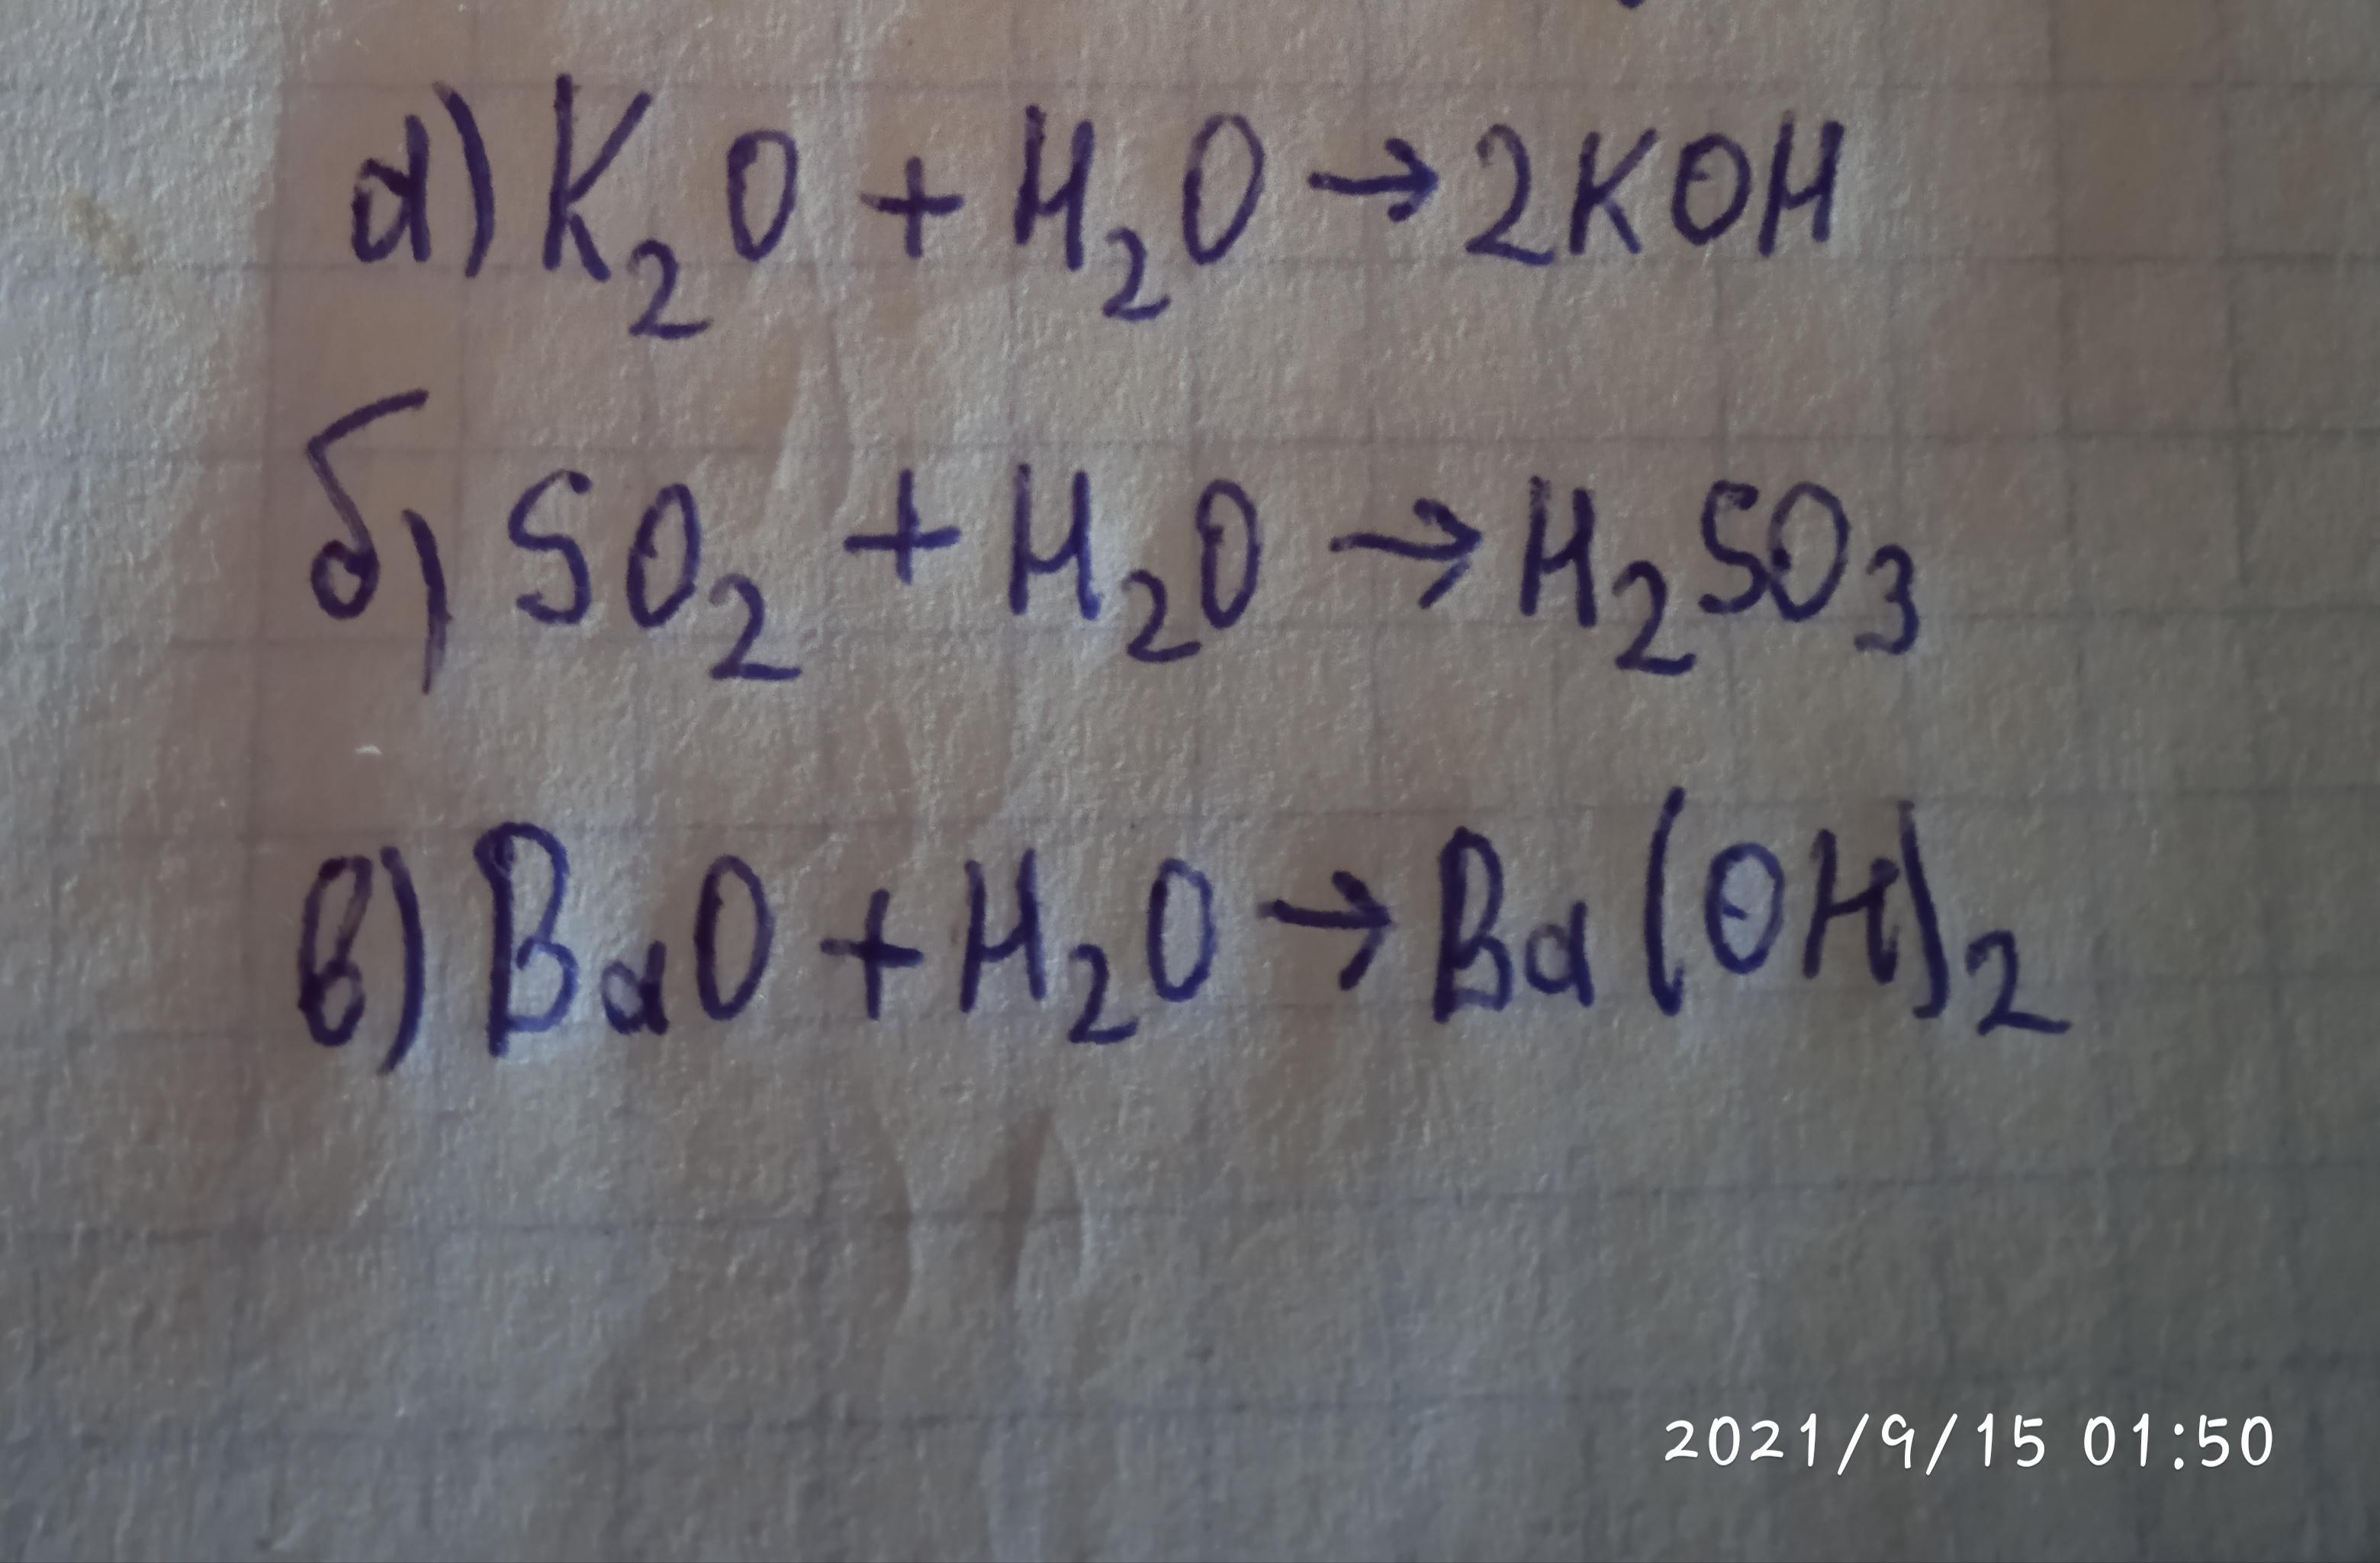 а) K₂O + H₂O → 2KOH
б) SO₂ + H₂O → H₂SO₃
в) BaO + H₂O → Ba(OH)₂
2021/9/15 01:50